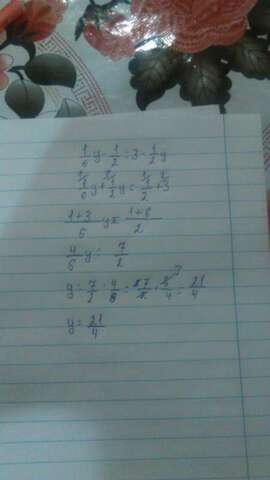 1/6 y - 1/2 = 3 - 1/2 y
1/6 y + 1/2 y = 1/2 + 3
1+3/6 y = 1+6/2
4/6 y = 7/2
y = 7/2 : 4/6 = 7/2 · 6/4 = 21/4
y = 21/4